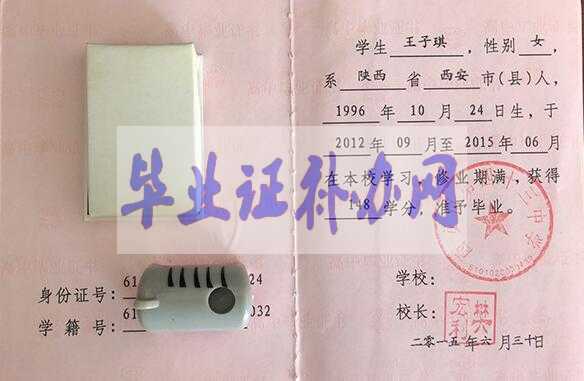 学生 王子琪 ，性别 女 ，
系 陕西 省 西安 市(县)人，
1996 年 10 月 24 日生，于
2012 年 09 月至 2015 年 06 月
在本校学习，修业期满，获得
148 学分，准予毕业。
毕业证补办网
身份证号：61 24
学籍号：61 032
学校：
校长：
樊宏利
二〇一五年六月三十日